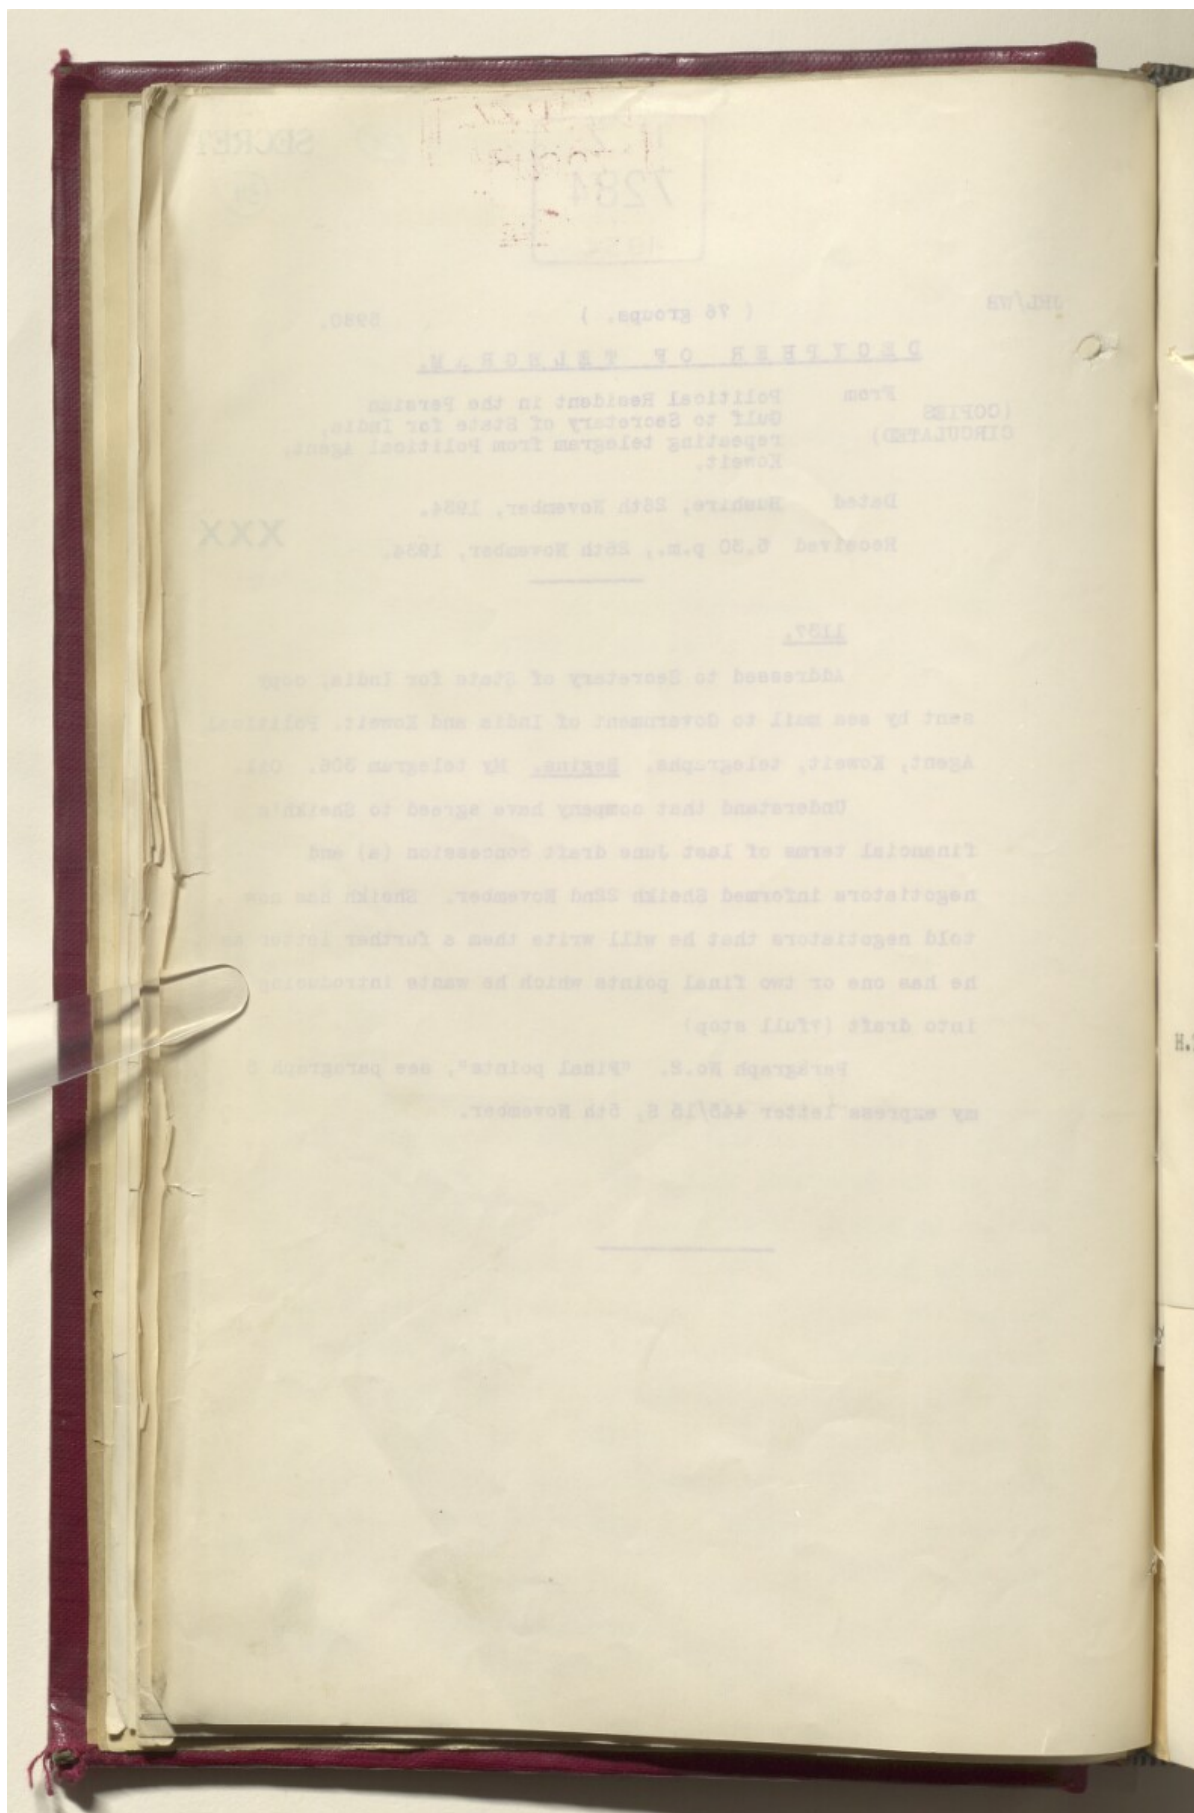 SECRET
7284
JHL/WH
( 76 groups. )
DECYPHER OF TELEGRAM.
(COPIES
CIRCULATED)
From Political Resident in the Persian
Gulf to Secretary of State for India,
repeating telegram from Political Agent,
Koweit.
Dated Bushire, 26th November, 1934.
Received 5.30 p.m., 26th November, 1934.
XXX
1137.
Addressed to Secretary of State for India, copy
sent by sea mail to Government of India and Koweit. Political
Agent, Koweit, telegraphs. Begins. My telegram 306. Oil.
Understand that company have agreed to Sheikh's
financial terms of last June draft concession (a) and
negotiators informed Sheikh 22nd November. Sheikh has now
told negotiators that he will write them a further letter as
he has one or two final points which he wants introducing
into draft (?full stop)
Paragraph No.2. "Final points", see paragraph 5
my express letter 445/15 S, 5th November.
H.